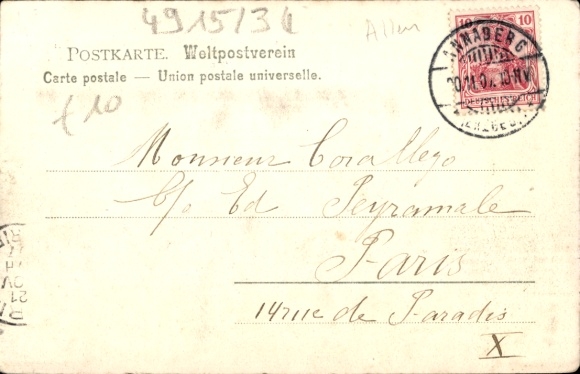 4915/34
Allem
POSTKARTE. Weltpostverein
Carte postale — Union postale universelle.
£10
10 10
DEUTSCHES REICH
ANNABERG
Monsieur Corallego
C/o Ed Peyramale
Paris
14 rue de Paradis
X
21